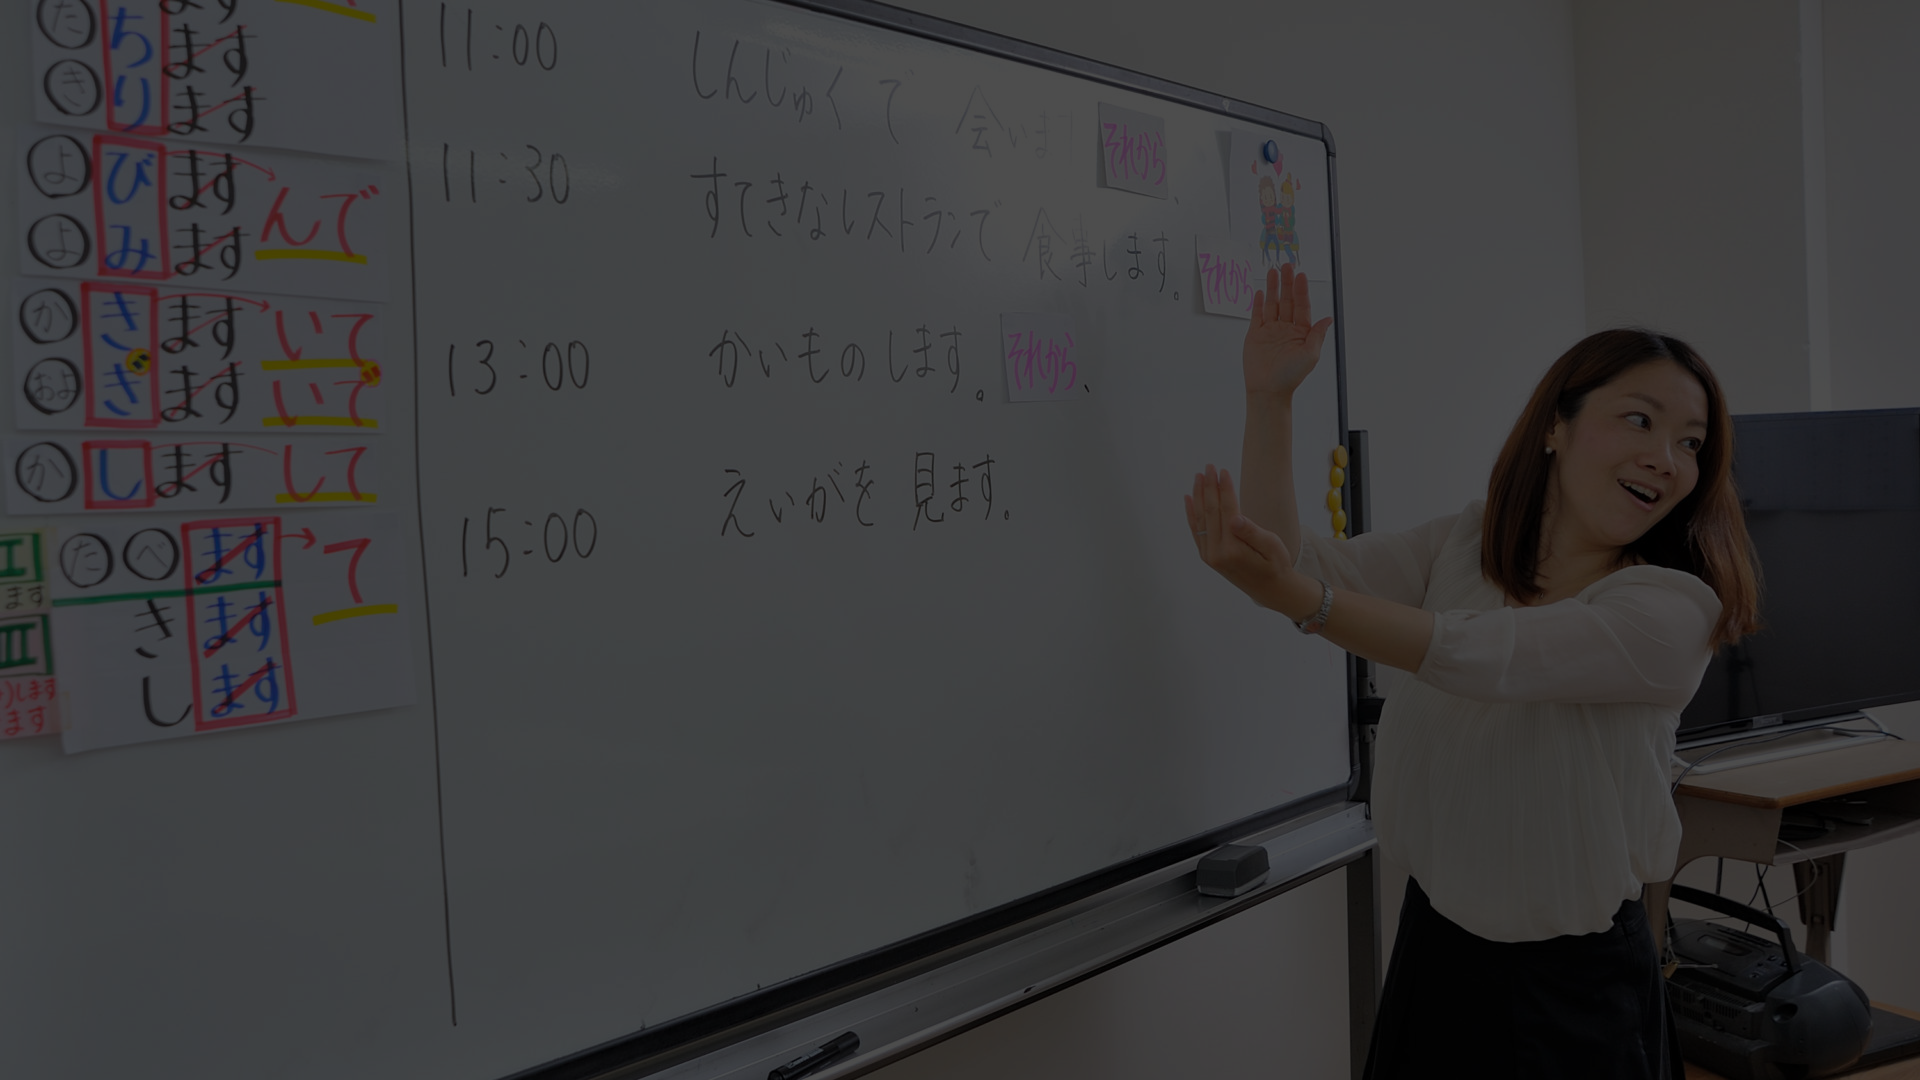 た ち ます
き り ます
よ び ます んで
よ み ます
か き ます いて
およ ぎ ます いで
か し ます して
Ⅱ た べ ます て
ます き ます
Ⅲ し ます
します
ます
11:00 しんじゅくで 会います それから、
11:30 すてきなレストランで 食事します。それから
13:00 かいものします。それから、
15:00 えいがを見ます。